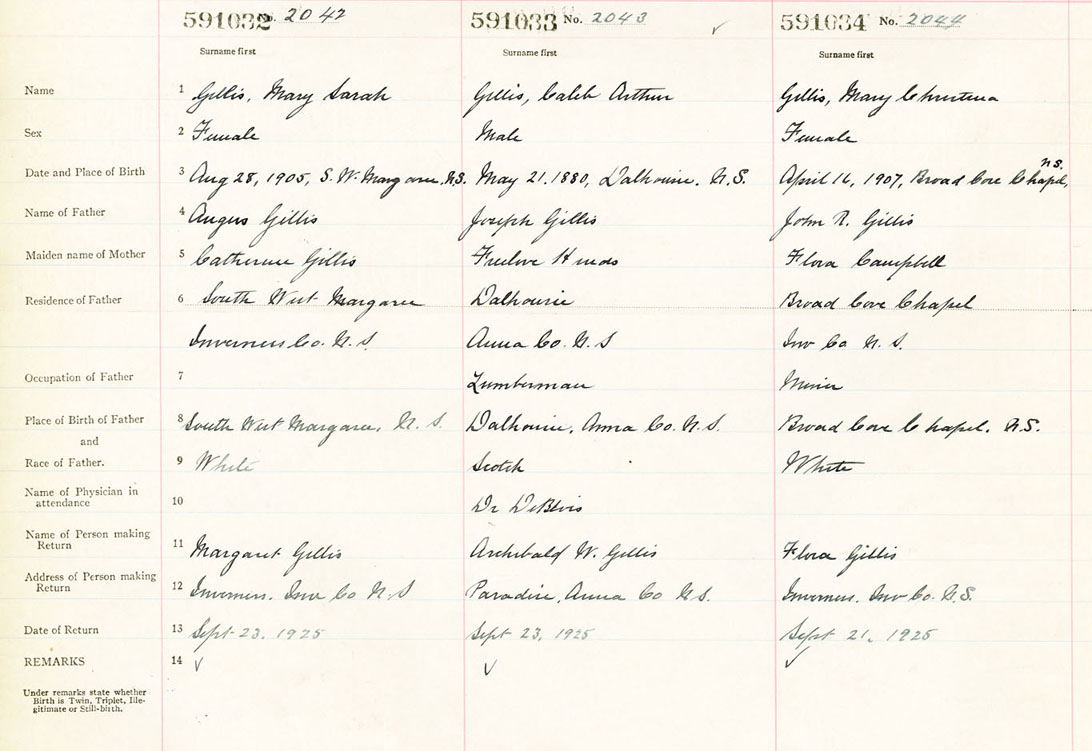 591032 No. 2042 591033 No. 2043 591034 No. 2044
Surname first Surname first Surname first
Name 1 Gillis, Mary Sarah Gillis, Caleb Arthur Gillis, Mary Christena
Sex 2 Female Male Female
N.S.
Date and Place of Birth 3 Aug 28, 1905, S. W. Margaree, N.S. May 21. 1880, Dalhousie. N.S. April 16, 1907, Broad Cove Chapel,
Name of Father 4 Angus Gillis Joseph Gillis John R. Gillis
Maiden name of Mother 5 Catherine Gillis Freelove Hinds Flora Campbell
Residence of Father 6 South West Margaree Dalhousie Broad Cove Chapel
Inverness Co. N.S. Anna Co. N.S Inv Co N.S.
Occupation of Father 7 Lumberman Miner
Place of Birth of Father 8 South West Margaree, N.S. Dalhousie, Anna Co. N.S. Broad Cove Chapel. N.S.
and
Race of Father. 9 White Scotch White
Name of Physician in
attendance 10 Dr DeBlois
Name of Person making
Return 11 Margaret Gillis Archibald W. Gillis Flora Gillis
Address of Person making
Return 12 Inverness. Inv Co N.S Paradise, Anna Co N.S. Inverness. Inv Co. N.S.
Date of Return 13 Sept 23, 1925 Sept 23, 1925 Sept 21, 1925
REMARKS 14
Under remarks state whether
Birth is Twin, Triplet, Ille-
gitimate or Still-birth.